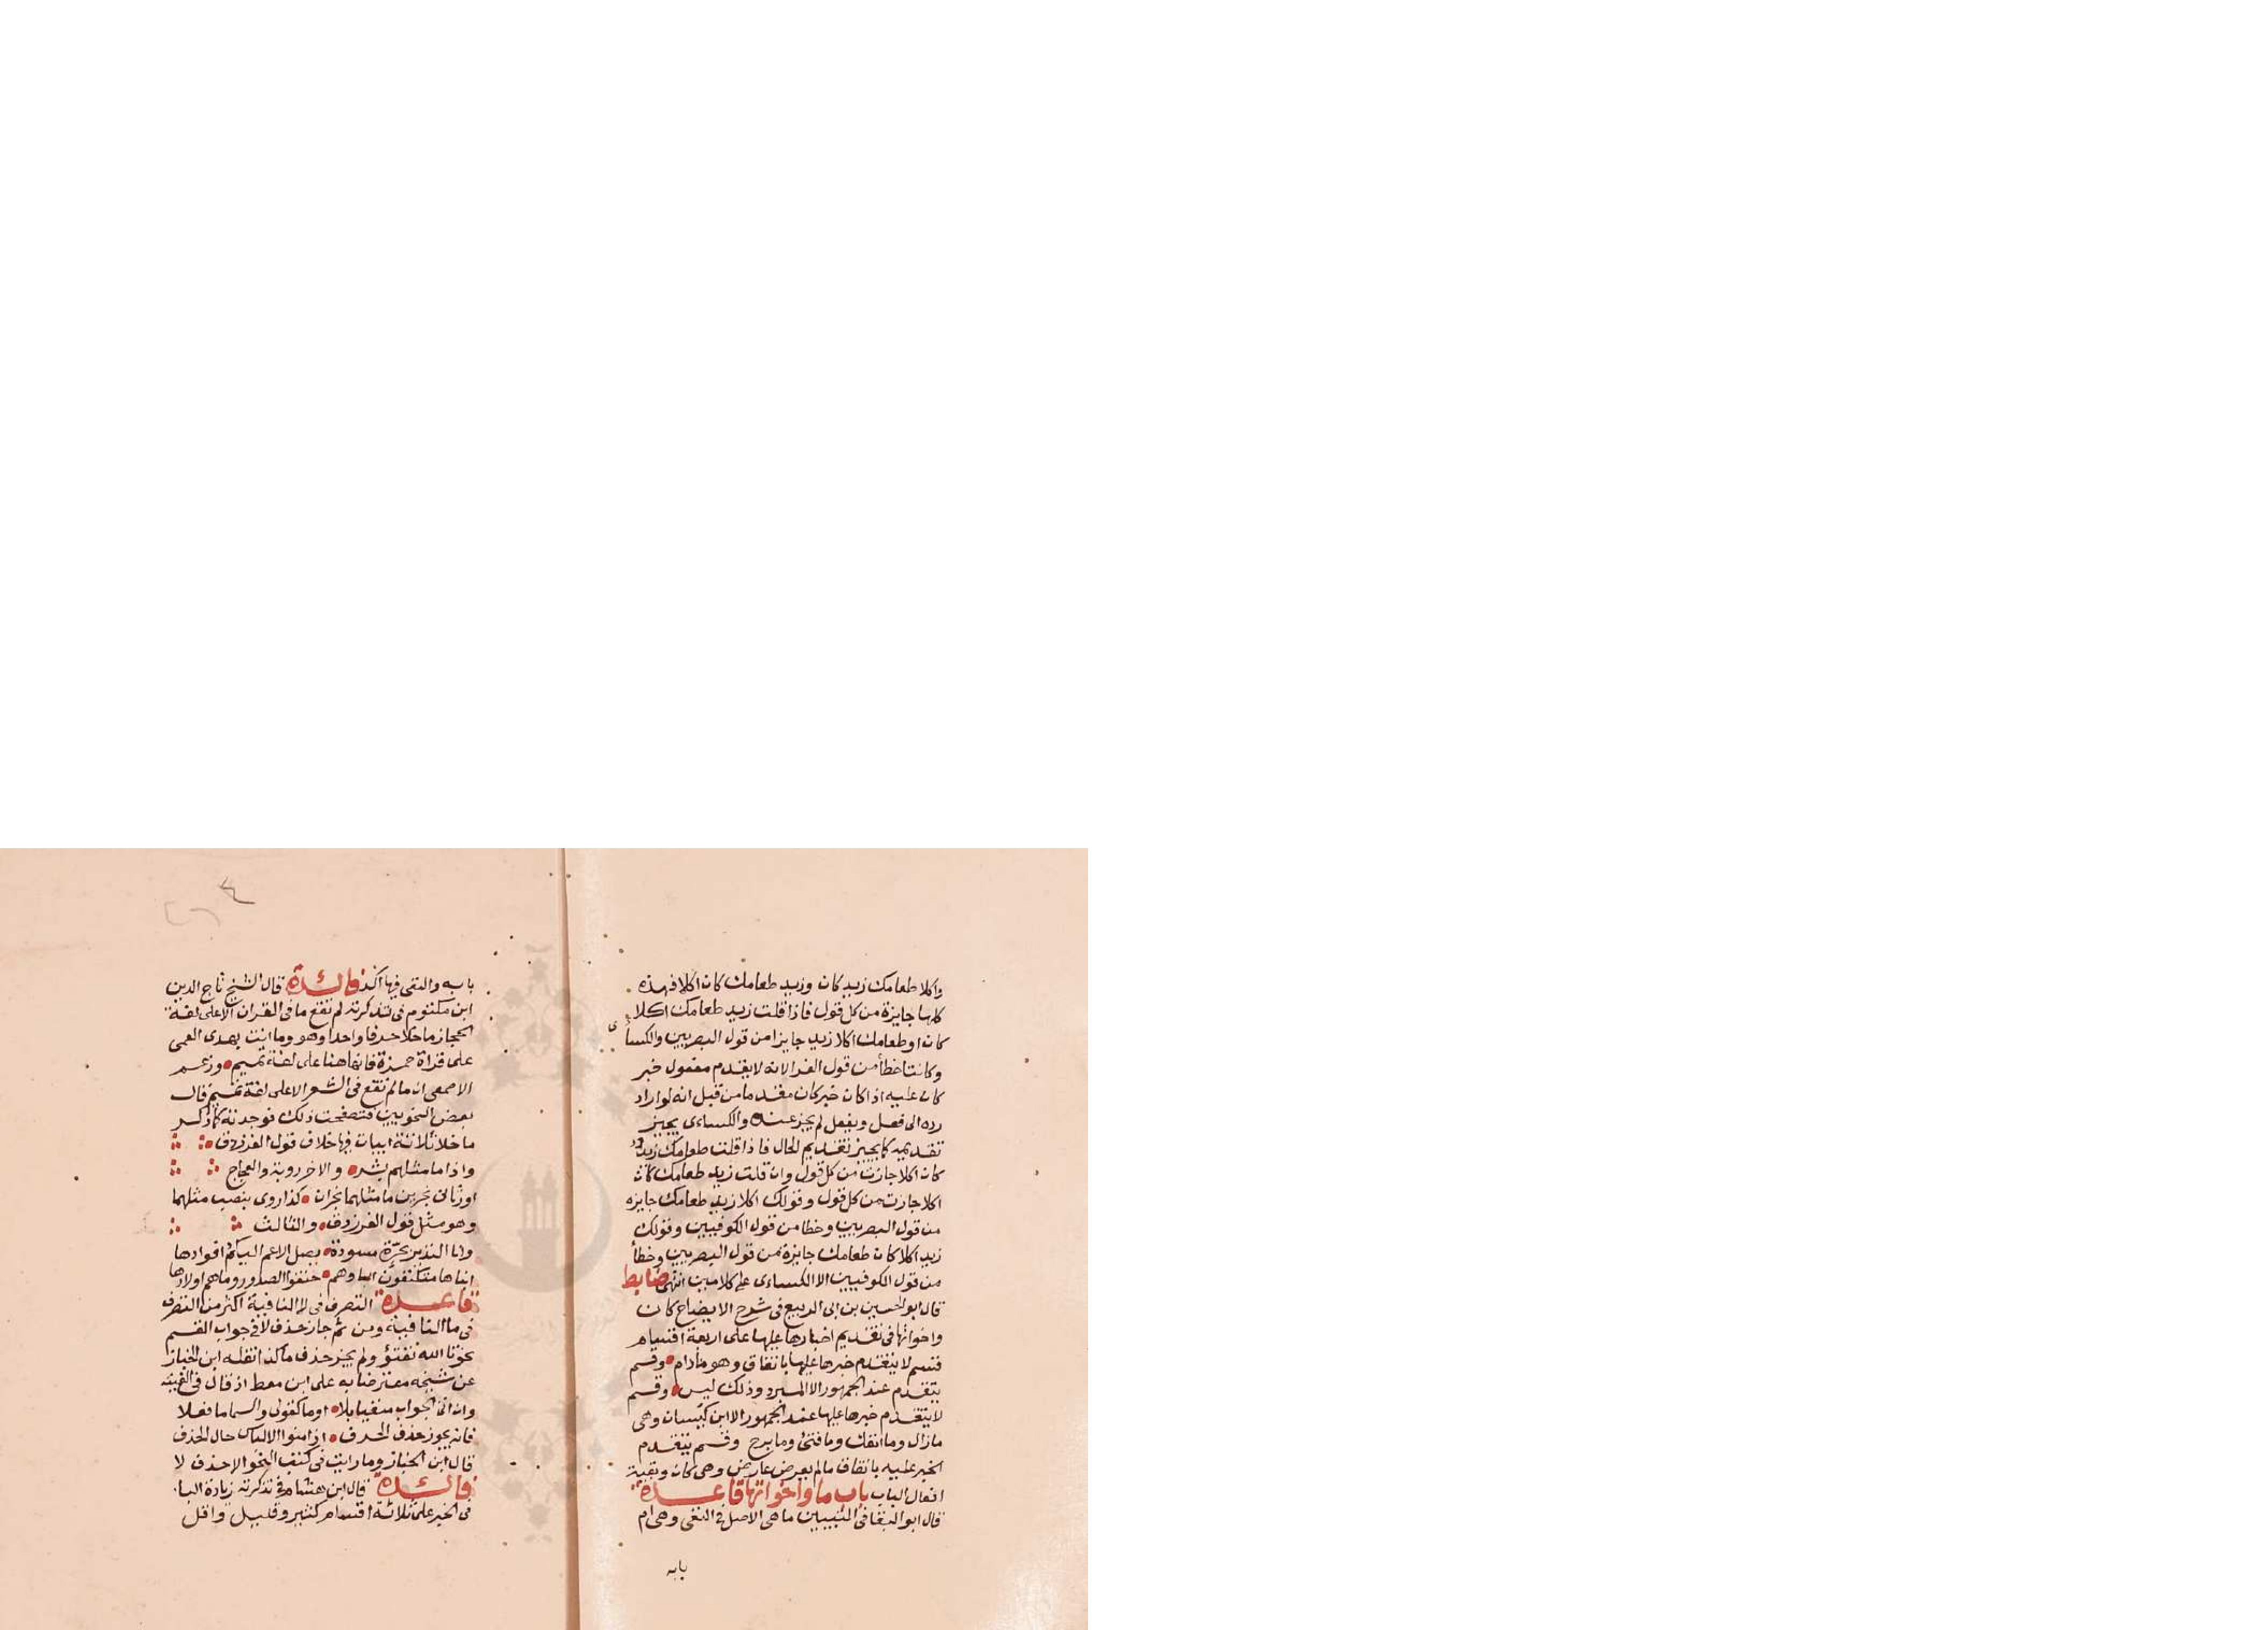 واكلا طعامك زيد كان وزيد طعامك كان اكلا فهذه
كلها جايزة من كل قول فاذا قلت زيد طعامك اكلا
كان او طعامك اكلا زيد جايزا من قول البصريين والكساى
وكانتا خطأ من قول الفرا لانه لا يقدم مفعول خبر
كان عليه اذا كان خبر كان مقدما من قبل انه لو اراد
رده الى فعل ويفعل لم يجز عنده والكساءى يجيز
تقديمه كما يجيز تقديم الحال فاذا قلت طعامك زيد
كان اكلا جازت من كل قول وان قلت زيد طعامك كان
اكلا جازت من كل قول وقولك اكلا زيد طعامك جايزه
من قول البصريين وخطا من قول الكوفيين وقولك
زيد اكلا كان طعامك جايزة من قول البصريين وخطأ
من قول الكوفيين الا الكساءى على كلامين انتهى ضابط
قال ابو الحسين بن ابى الربيع فى شرح الايضاح كان
واخواتها فى تقديم اخبارها عليها على اربعة اقسام
قسم لا يتقدم خبرها عليها باتفاق وهو مادام وقسم
يتقدم عند الجمهور الا المبرد وذلك ليس وقسم
لا يتقدم خبرها عليها عند الجمهور الا ابن كيسان وهى
مازال وما انفك وما فتئ وما برح وقسم يتقدم
الخبر عليه باتفاق ما لم يعرض عارض وهى كان وبقية
افعال الباب باب ما واخواتها قاعدة
قال ابو البقا فى التبيين ما هى الاصل فى النفى وهى ام
بابه
بابه والنفى فيها اكد فائدة قال الشيخ تاج الدين
ابن مكتوم فى تذكرته لم تقع ما فى القران الا على لغة
الحجاز ما خلا حرفا واحدا وهو وما انت بهدى العمى
على قراة حمزة فانها هنا على لغة تميم وزعم
الاصمعى ان ما لم تقع فى الشعر الا على لغة تميم قال
بعض النحويين فتصفحت ذلك فوجدته كما ذكر
ما خلا ثلاثة ابيات فيها خلاف قول الفرزدق
واذا ما مثلهم بشر والاخر روبة والعجاج
نجران كذا روى بنصب مثلهما
وهو مثل قول الفرزدق والثالث
وانا النذير بحرة مسودة يصل الاعم اليكم اقوادها
ابناها متكنفون اباوهم حنقوا الصدور وما هم اولادها
قاعدة التصرف فى لا النافية اكثر من التصرف
فى ما النافية ومن ثم جاز حذف لا فى جواب القسم
نحو تا الله تفتؤ ولم يجز حذف ما كذا نقله ابن الخباز
عن شيخه معترضا به على ابن معط اذ قال فى الفيته
وان اتى الجواب منفيا بلا او ما كقولى والسما ما فعلا
فانه يجوز حذف الحرف اذ امنوا الالباس حال الحذف
قال ابن الخباز وما رايت فى كتب النحو الا حذف لا
فائدة قال ابن هشام فى تذكرته زيادة البا
فى الخبر على ثلاثة اقسام كثير وقليل واقل